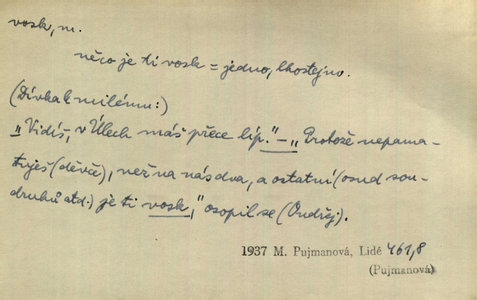 vosk, m.
něco je ti vosk = jedno, lhostejno.
(Dívka k milému:)
„Vidíš, v Úlech máš přece líp." – „Protože nepama-
tuješ (děvče), než na nás dva, a ostatní (osud sou-
druhů atd.) je ti vosk," osopil se (Ondřej).
1937 M. Pujmanová, Lidé 461,8
(Pujmanová)